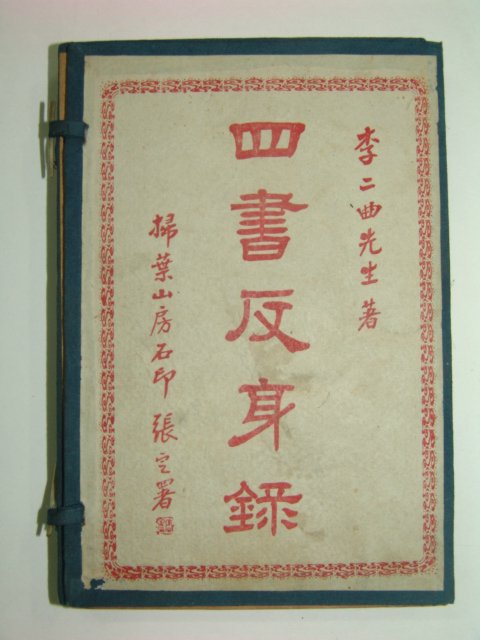 李二曲先生著
四書反身錄
掃葉山房石印 張定署